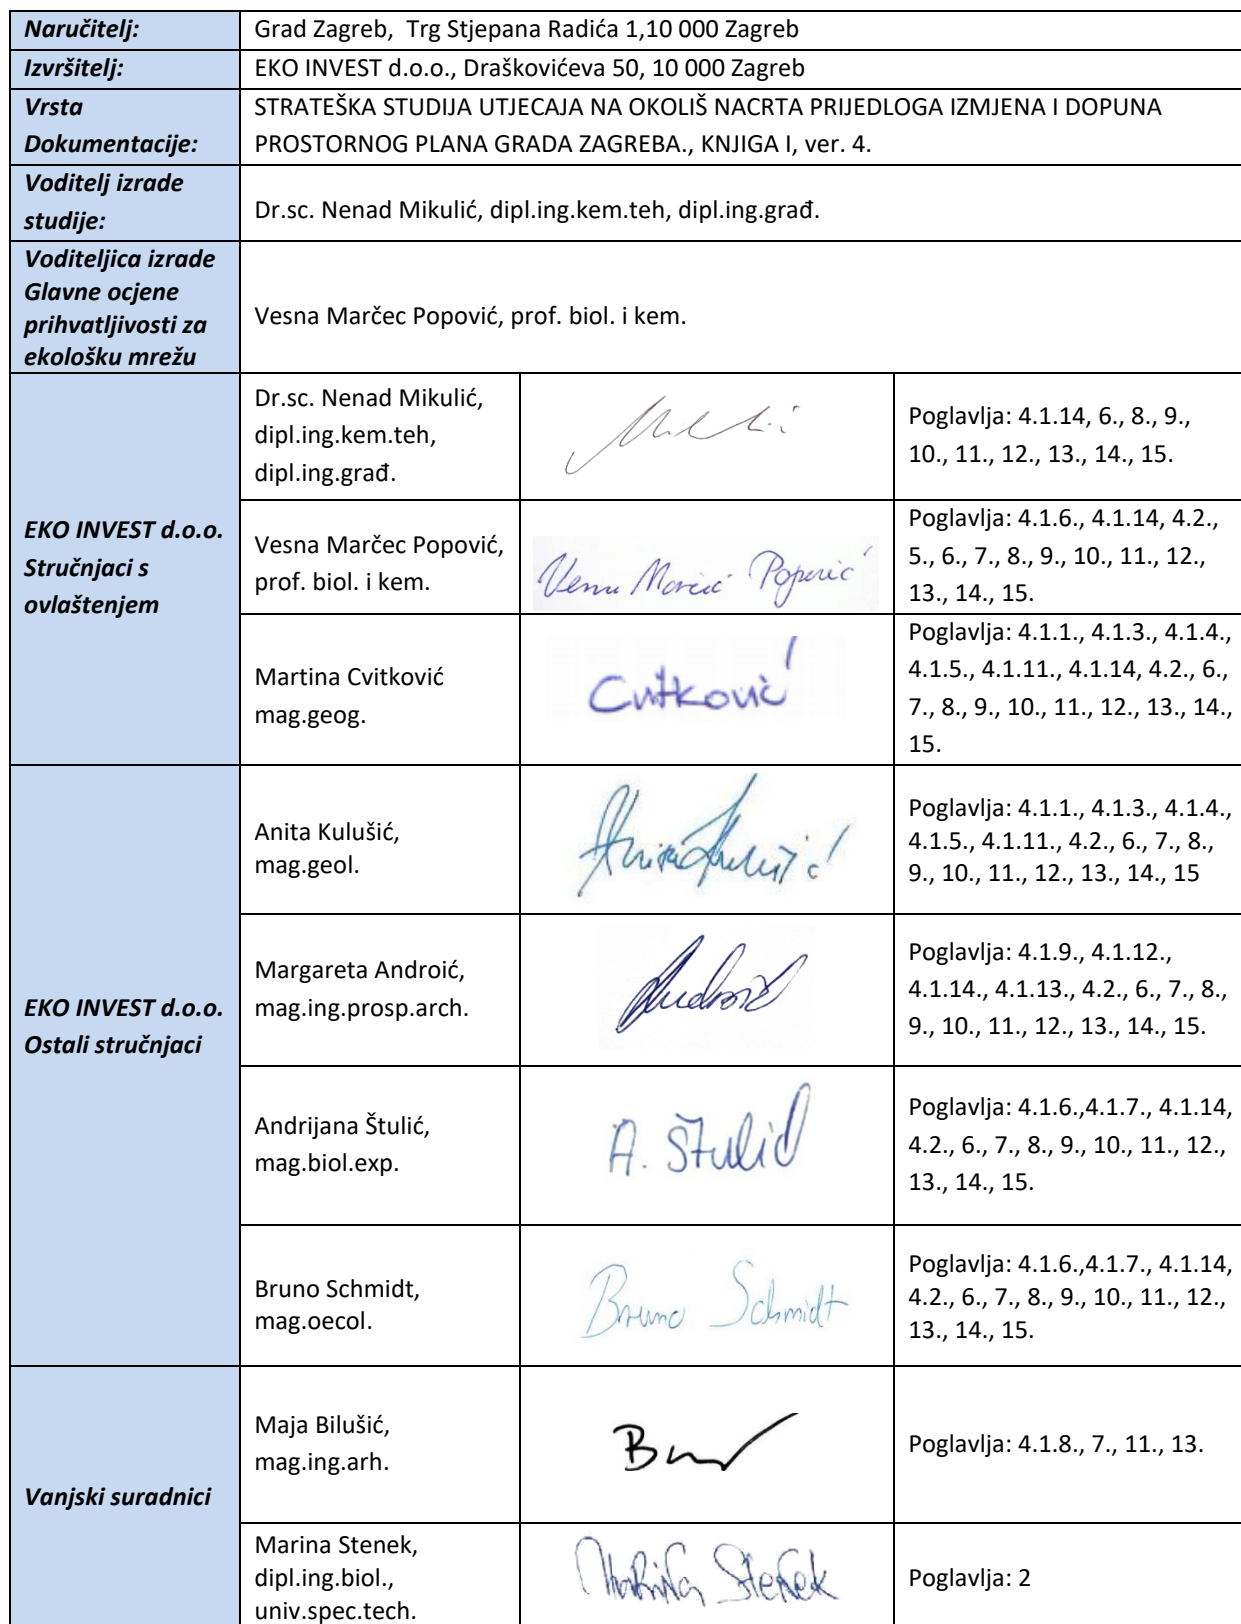 Naručitelj:
Grad Zagreb, Trg Stjepana Radića 1,10 000 Zagreb
Izvršitelj:
EKO INVEST d.o.o., Draškovićeva 50, 10 000 Zagreb
Vrsta
Dokumentacije:
STRATEŠKA STUDIJA UTJECAJA NA OKOLIŠ NACRTA PRIJEDLOGA IZMJENA I DOPUNA
PROSTORNOG PLANA GRADA ZAGREBA., KNJIGA I, ver. 4.
Voditelj izrade
studije:
Dr.sc. Nenad Mikulić, dipl.ing.kem.teh, dipl.ing.građ.
Voditeljica izrade
Glavne ocjene
prihvatljivosti za
ekološku mrežu
Vesna Marčec Popović, prof. biol. i kem.
EKO INVEST d.o.o.
Stručnjaci s
ovlaštenjem
Dr.sc. Nenad Mikulić,
dipl.ing.kem.teh,
dipl.ing.građ.
Poglavlja: 4.1.14, 6., 8., 9.,
10., 11., 12., 13., 14., 15.
Vesna Marčec Popović,
prof. biol. i kem.
Poglavlja: 4.1.6., 4.1.14, 4.2.,
5., 6., 7., 8., 9., 10., 11., 12.,
13., 14., 15.
Martina Cvitković
mag.geog.
Cvitković
Poglavlja: 4.1.1., 4.1.3., 4.1.4.,
4.1.5., 4.1.11., 4.1.14, 4.2., 6.,
7., 8., 9., 10., 11., 12., 13., 14.,
15.
EKO INVEST d.o.o.
Ostali stručnjaci
Anita Kulušić,
mag.geol.
Poglavlja: 4.1.1., 4.1.3., 4.1.4.,
4.1.5., 4.1.11., 4.2., 6., 7., 8.,
9., 10., 11., 12., 13., 14., 15
Margareta Androić,
mag.ing.prosp.arch.
Poglavlja: 4.1.9., 4.1.12.,
4.1.14., 4.1.13., 4.2., 6., 7., 8.,
9., 10., 11., 12., 13., 14., 15.
Andrijana Štulić,
mag.biol.exp.
A. Štulić
Poglavlja: 4.1.6.,4.1.7., 4.1.14,
4.2., 6., 7., 8., 9., 10., 11., 12.,
13., 14., 15.
Bruno Schmidt,
mag.oecol.
Bruno Schmidt
Poglavlja: 4.1.6.,4.1.7., 4.1.14,
4.2., 6., 7., 8., 9., 10., 11., 12.,
13., 14., 15.
Vanjski suradnici
Maja Bilušić,
mag.ing.arh.
Poglavlja: 4.1.8., 7., 11., 13.
Marina Stenek,
dipl.ing.biol.,
univ.spec.tech.
Marina Stenek
Poglavlja: 2